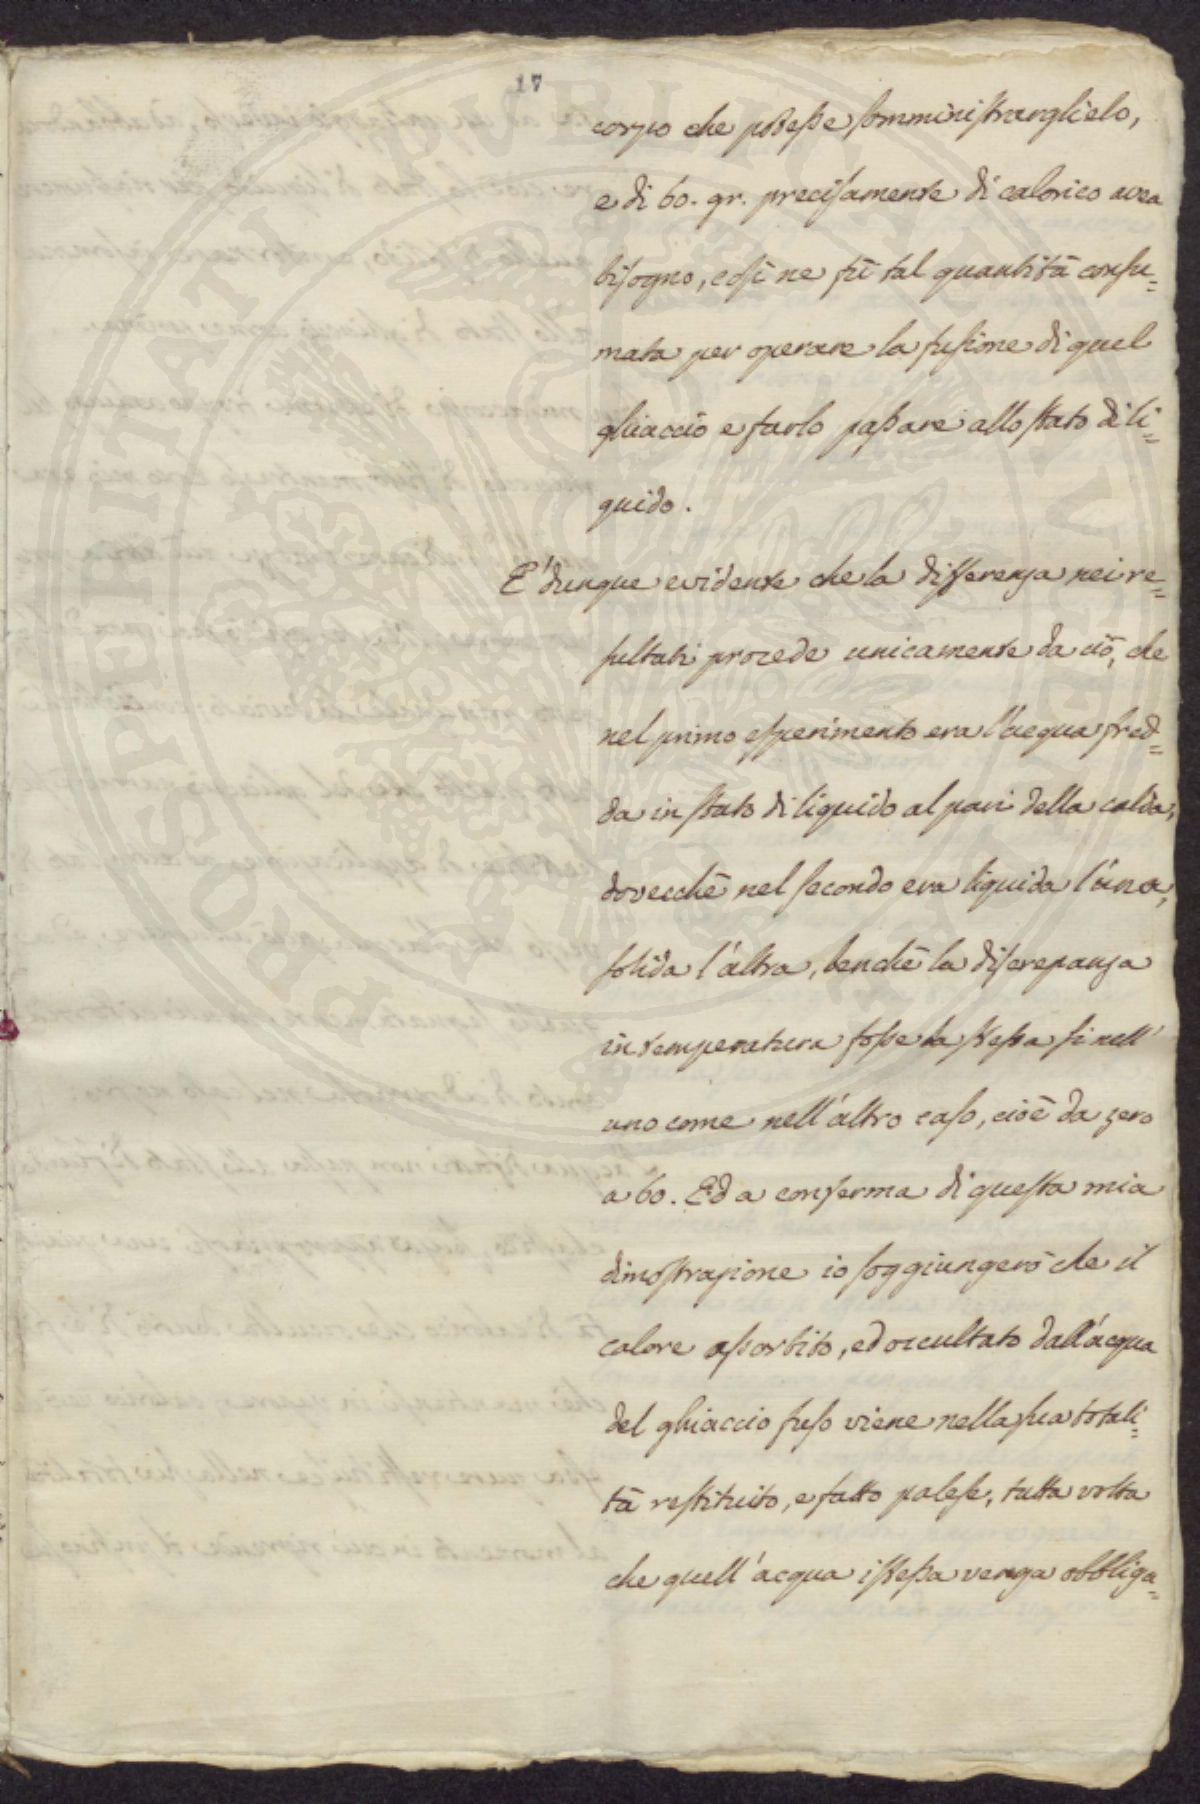 17
corpo che potesse somministrarglielo,
e di 60. gr. precisamente di calorico avea
bisogno, e sì ne fù tal quantità consu=
mata per operare la fusione di quel
ghiaccio e farlo passare allo stato di li=
quido.
E' dunque evidente che la differenza nei re=
sultati procede unicamente da ciò, che
nel primo esperimento era l'acqua fred=
da in stato di liquido al pari della calda,
dovecchè nel secondo era liquida l'una,
solida l'altra, benchè la discrepanza
in temperatura fosse la stessa sì nell'
uno come nell'altro caso, cioè da zero
a 60. Ed a conferma di questa mia
dimostrazione io soggiungerò che il
calore assorbito, ed occultato dall'acqua
del ghiaccio fuso viene nella sua totali=
tà restituito, e fatto palese, tutta volta
che quell'acqua istessa venga obbliga=
PROSPERITATI PUBLICAE AUGENDAE